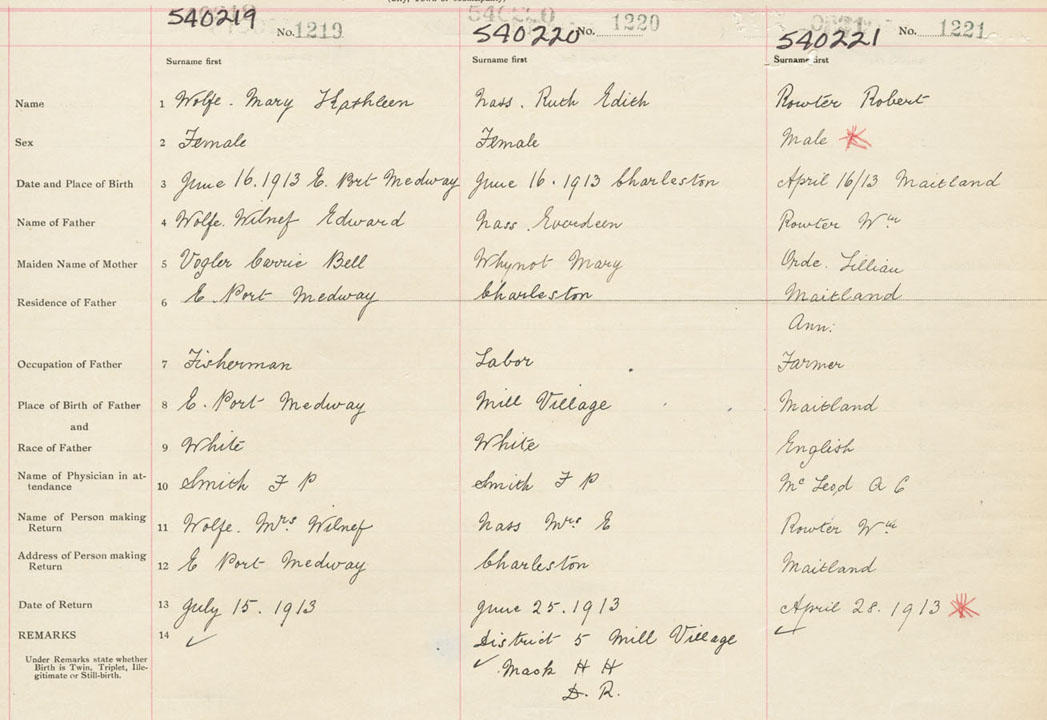 540219 No. 1219 540220 No. 1220 540221 No. 1221
Surname first Surname first Surname first
Name 1 Wolfe. Mary Kathleen Nass. Ruth Edith Rowter Robert
Sex 2 Female Female Male
Date and Place of Birth 3 June 16. 1913 E. Port Medway June 16. 1913 Charleston April 16/13 Maitland
Name of Father 4 Wolfe. Wilnef Edward Nass. Everdeen Rowter Wm
Maiden Name of Mother 5 Vogler Carrie Bell Whynot Mary Orde. Lillian
Residence of Father 6 E. Port Medway Charleston Maitland
Ann:
Occupation of Father 7 Fisherman Labor Farmer
Place of Birth of Father 8 E. Port Medway Mill Village Maitland
and
Race of Father 9 White White English
Name of Physician in at-
tendance 10 Smith F P Smith F P Mc Leod A C
Name of Person making
Return 11 Wolfe. Mrs Wilnef Nass Mrs E Rowter Wm
Address of Person making
Return 12 E Port Medway Charleston Maitland
Date of Return 13 July 15. 1913 June 25. 1913 April 28. 1913
REMARKS 14 District 5 Mill Village
Under Remarks state whether
Birth is Twin, Triplet, Ille-
gitimate or Still-birth.
Mack H H
D. R.